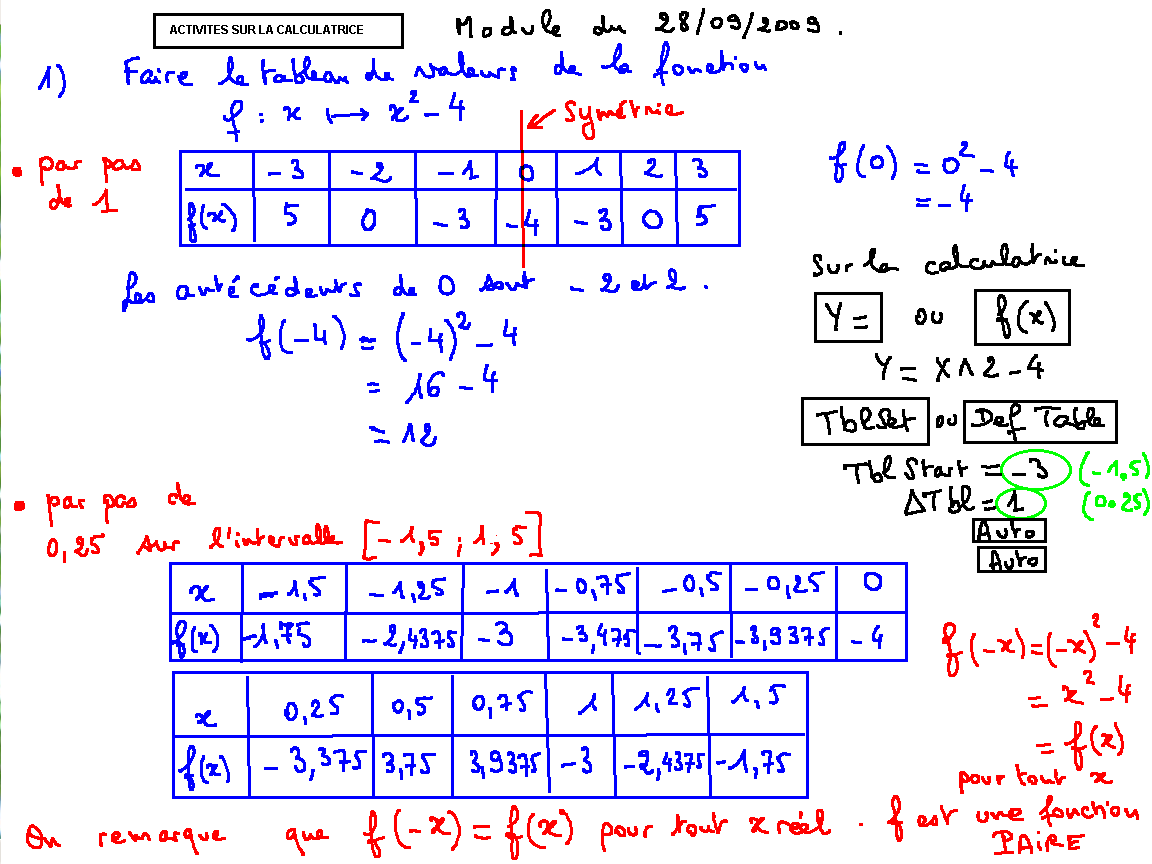 ACTIVITES SUR LA CALCULATRICE
Module du 28/09/2009.
1) Faire le tableau de valeurs de la fonction
f : x ⟼ x² - 4
Symétrie
• par pas
de 1
x -3 -2 -1 0 1 2 3
f(x) 5 0 -3 -4 -3 0 5
f(0) = 0² - 4
= -4
Les antécédents de 0 sont -2 et 2.
f(-4) = (-4)² - 4
= 16 - 4
= 12
Sur la calculatrice
Y = ou f(x)
Y = X∧2-4
TblSet ou Def Table
Tbl Start = -3 (-1,5)
ΔTbl = 1 (0.25)
Auto
Auto
• par pas de
0,25 sur l'intervalle [-1,5 ; 1,5]
x -1,5 -1,25 -1 -0,75 -0,5 -0,25 0
f(x) -1,75 -2,4375 -3 -3,475 -3,75 -3,9375 -4
x 0,25 0,5 0,75 1 1,25 1,5
f(x) -3,375 3,75 3,9375 -3 -2,4375 -1,75
f(-x) = (-x)² - 4
= x² - 4
= f(x)
pour tout x
On remarque que f(-x) = f(x) pour tout x réel. f est une fonction
PAIRE